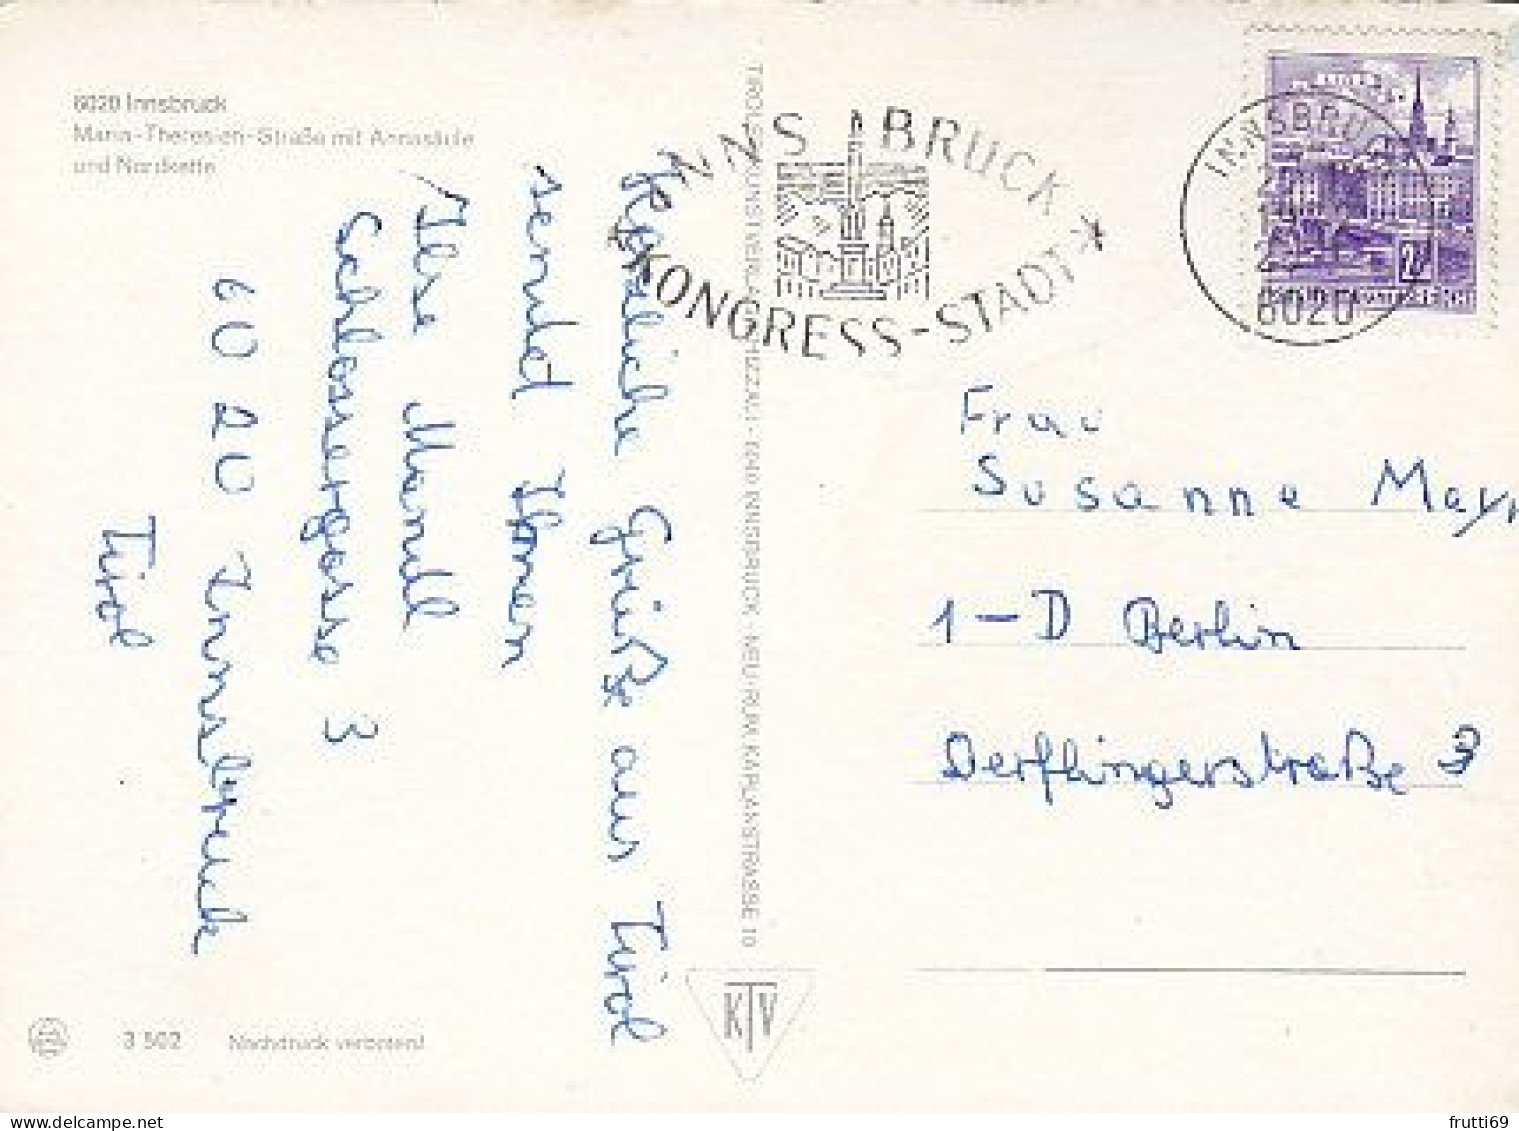 6020 Innsbruck
Maria-Theresien-Straße mit Annasäule
und Nordkette
Herzliche Grüße aus Tirol
sendet Ihnen
Ilse Mandl
Schlossergasse 3
6020 Innsbruck
Tirol
3 502 Nachdruck verboten!
TIROL KUNSTVERLAG CHIZZALI - 6040 INNSBRUCK - NEU-RUM, KAPLANSTRASSE 10
KTV
INNSBRUCK
KONGRESS-STADT
INNSBRUCK
6020
2
Frau
Susanne May
1-D Berlin
Derflingerstraße 3
frutti69